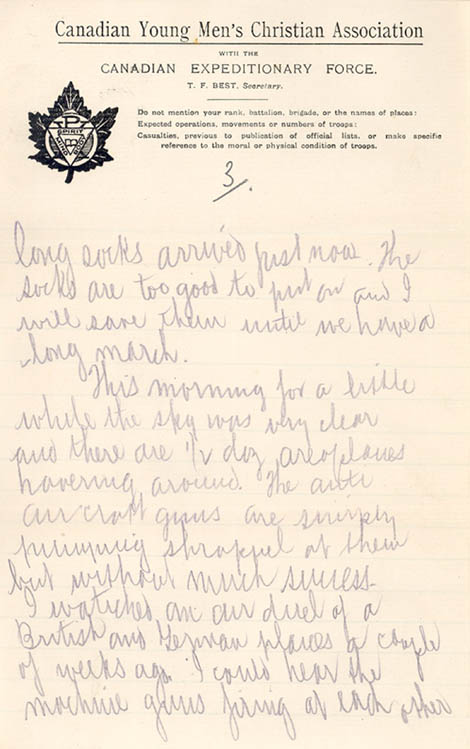 Canadian Young Men's Christian Association
WITH THE
CANADIAN EXPEDITIONARY FORCE.
T. F. BEST, Secretary.
Do not mention your rank, battalion, brigade, or the names of places:
Expected operations, movements or numbers of troops:
Casualties, previous to publication of official lists, or make specific
reference to the moral or physical condition of troops.
SPIRIT
MIND
BODY
3/.
long socks arrived just now. The
socks are too good to put on and I
will save them until we have a
long march.
This morning for a little
while the sky was very clear
and there are 1/2 doz areoplanes
hovering around. The anti
aircraft guns are simply
pumping shrappel at them
but without much success.
I watched an air duel of a
British and German planes a couple
of weeks ago. I could hear the
machine guns firing at each other